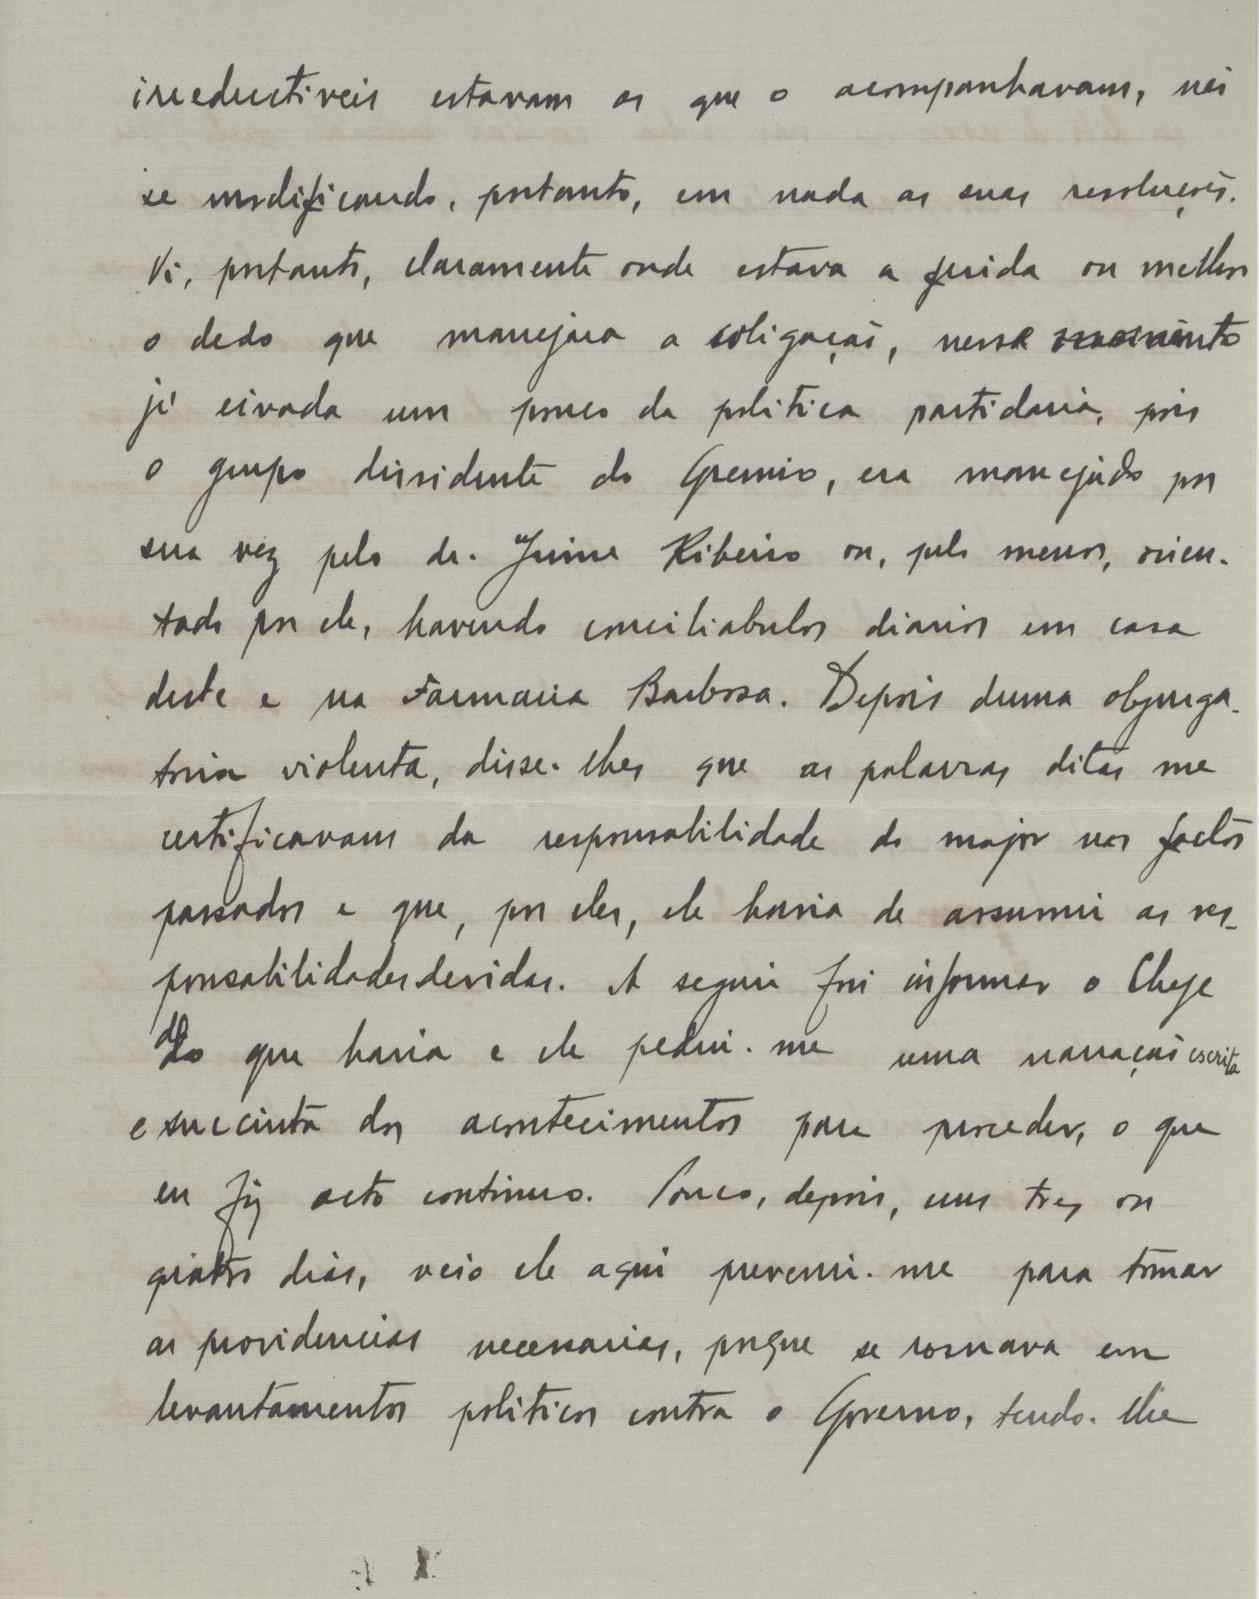 irreductiveis estavam os que o acompanhavam, não
se modificando, portanto, em nada as suas resoluções.
Vi, portanto, claramente onde estava a ferida ou melhor
o dedo que manejava a coligação, nesse momento
já eivada um pouco da politica partidaria, pois
o grupo dissidente do Gremio, era manejado por
sua vez pelo dr. Jaime Ribeiro ou, pelo menos, orien-
tado por ele, havendo conciliabulos diarios em casa
deste e na Farmacia Barbosa. Depois duma objurga-
toria violenta, disse-lhes que as palavras ditas me
certificavam da responsabilidade do major nos factos
passados e que, por eles, ele havia de assumir as res-
ponsabilidades devidas. A seguir fui informar o Chefe
do que havia e ele pediu-me uma narração escrita
e succinta dos acontecimentos para proceder, o que
eu fiz acto continuo. Pouco, depois, uns tres ou
quatro dias, veio ele aqui prevenir-me para tomar
as providencias necessarias, porque se rosnava em
levantamentos politicos contra o Governo, tendo-lhe